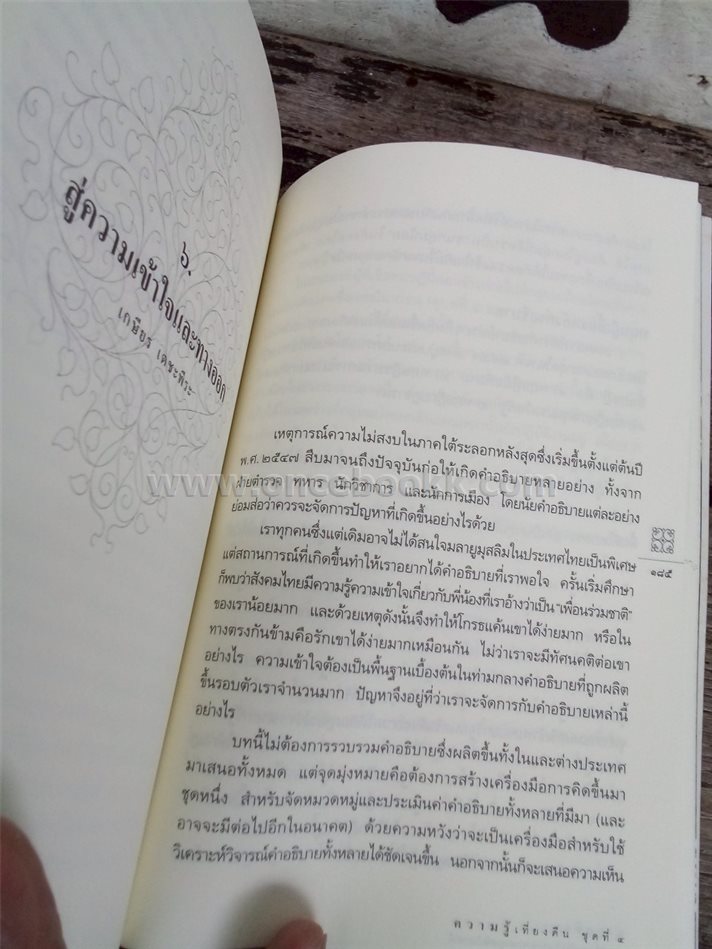 ๖.
สู่ความเข้าใจและทางออก
เกษียร เตชะพีระ
เหตุการณ์ความไม่สงบในภาคใต้ระลอกหลังสุดซึ่งเริ่มขึ้นตั้งแต่ต้นปี
พ.ศ. ๒๕๔๗ สืบมาจนถึงปัจจุบันก่อให้เกิดคำอธิบายหลายอย่าง ทั้งจาก
ฝ่ายตำรวจ ทหาร นักวิชาการ และนักการเมือง โดยนัยคำอธิบายแต่ละอย่าง
ย่อมส่อว่าควรจะจัดการปัญหาที่เกิดขึ้นอย่างไรด้วย
เราทุกคนซึ่งแต่เดิมอาจไม่ได้สนใจมลายูมุสลิมในประเทศไทยเป็นพิเศษ
แต่สถานการณ์ที่เกิดขึ้นทำให้เราอยากได้คำอธิบายที่เราพอใจ ครั้นเริ่มศึกษา
ก็พบว่าสังคมไทยมีความรู้ความเข้าใจเกี่ยวกับพี่น้องที่เราอ้างว่าเป็น "เพื่อนร่วมชาติ"
ของเราน้อยมาก และด้วยเหตุดังนั้นจึงทำให้โกรธแค้นเขาได้ง่ายมาก หรือใน
ทางตรงกันข้ามคือรักเขาได้ง่ายมากเหมือนกัน ไม่ว่าเราจะมีทัศนคติต่อเขา
อย่างไร ความเข้าใจต้องเป็นพื้นฐานเบื้องต้นในท่ามกลางคำอธิบายที่ถูกผลิต
ขึ้นรอบตัวเราจำนวนมาก ปัญหาจึงอยู่ที่ว่าเราจะจัดการกับคำอธิบายเหล่านี้
อย่างไร
บทนี้ไม่ต้องการรวบรวมคำอธิบายซึ่งผลิตขึ้นทั้งในและต่างประเทศ
มาเสนอทั้งหมด แต่จุดมุ่งหมายคือต้องการสร้างเครื่องมือการคิดขึ้นมา
ชุดหนึ่ง สำหรับจัดหมวดหมู่และประเมินค่าคำอธิบายทั้งหลายที่มีมา (และ
อาจจะมีต่อไปอีกในอนาคต) ด้วยความหวังว่าจะเป็นเครื่องมือสำหรับใช้
วิเคราะห์วิจารณ์คำอธิบายทั้งหลายได้ชัดเจนขึ้น นอกจากนั้นก็จะเสนอความเห็น
๑๘๕
ความรู้เที่ยงคืน ชุดที่ ๔